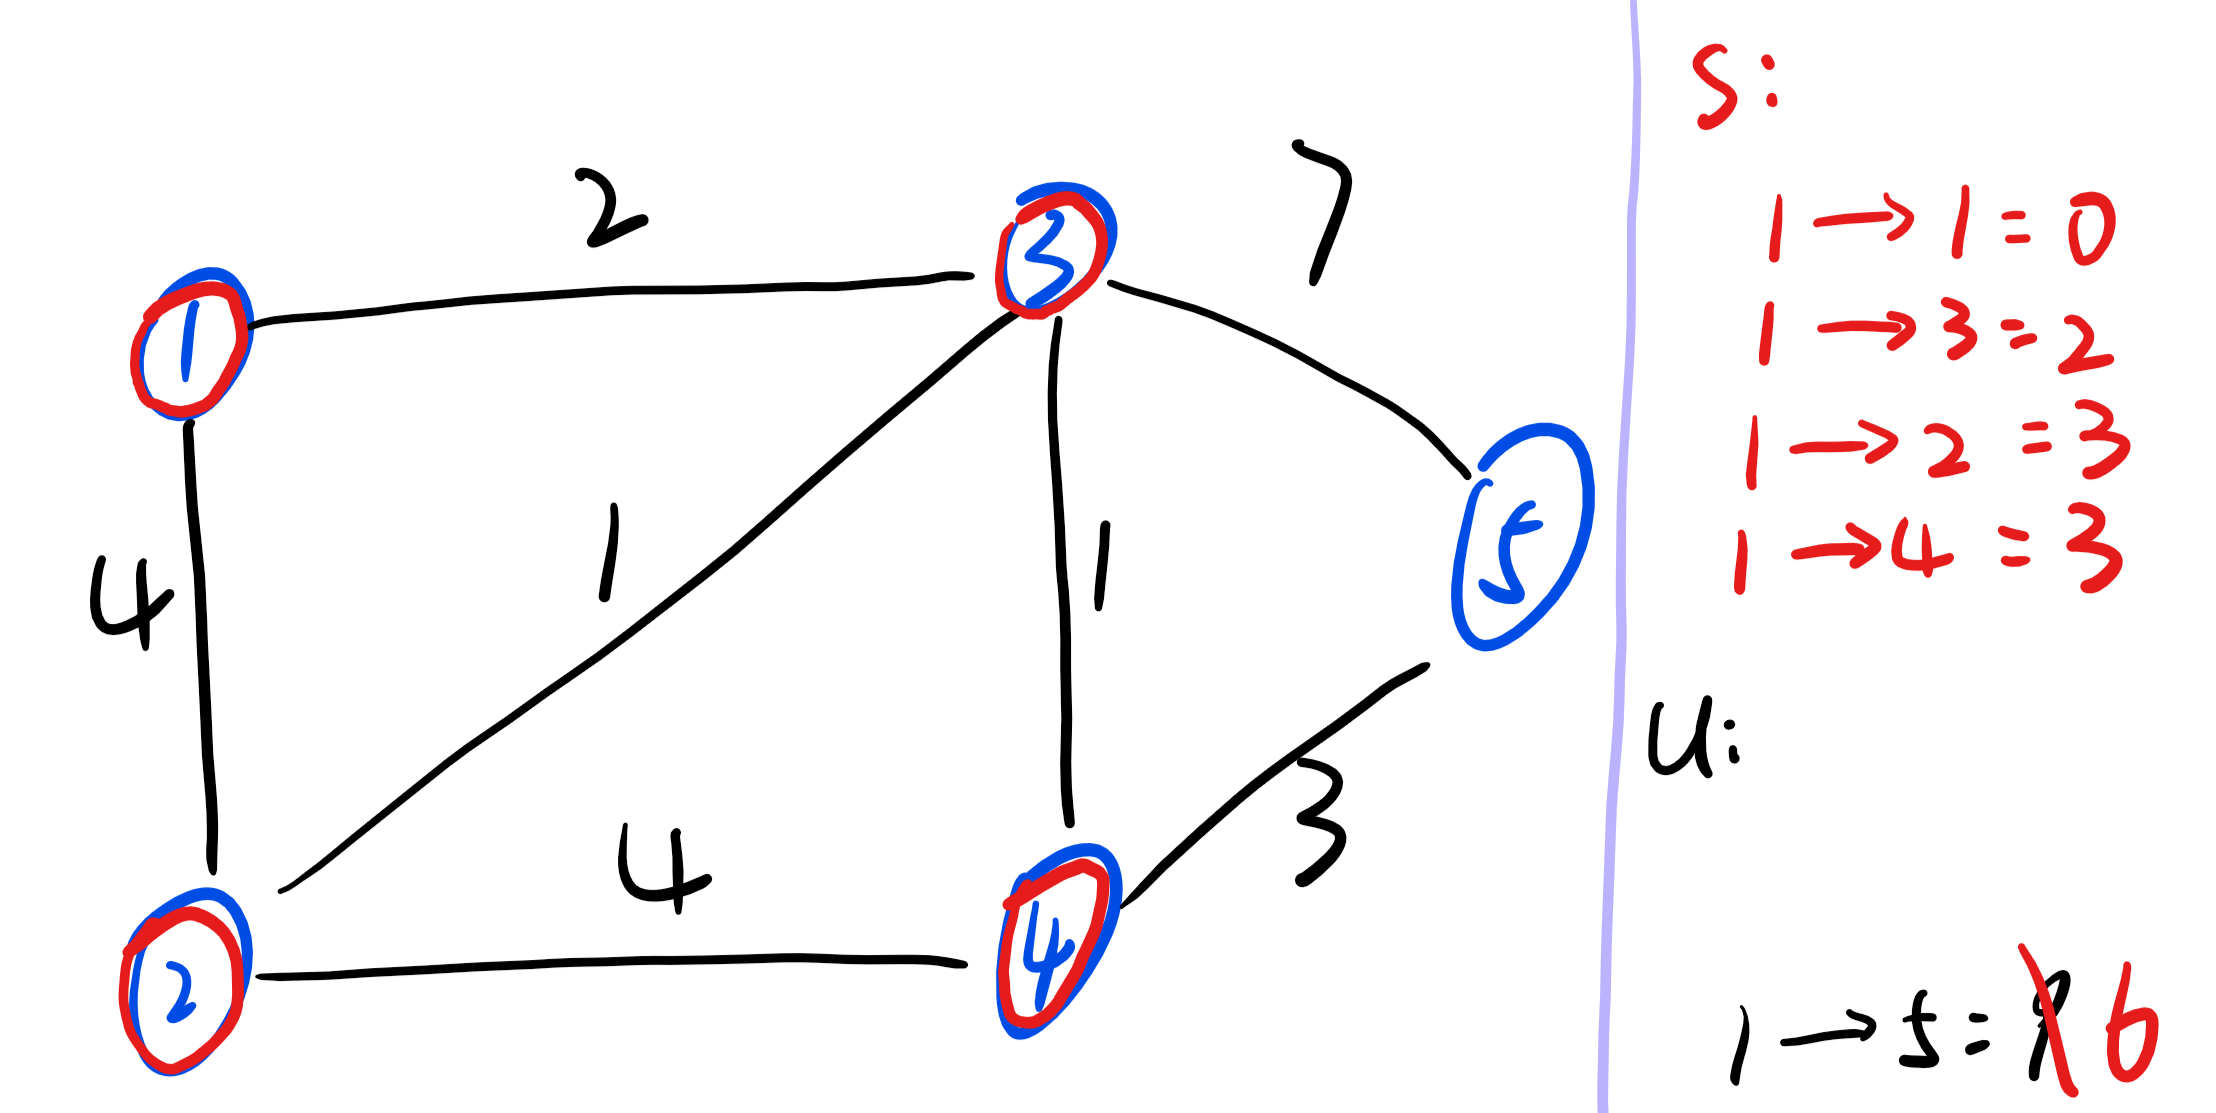 2
7
3
1
5
4
1
1
4
3
2
4
S:
1 → 1 = 0
1 → 3 = 2
1 → 2 = 3
1 → 4 = 3
U:
1 → 5 = 9 6